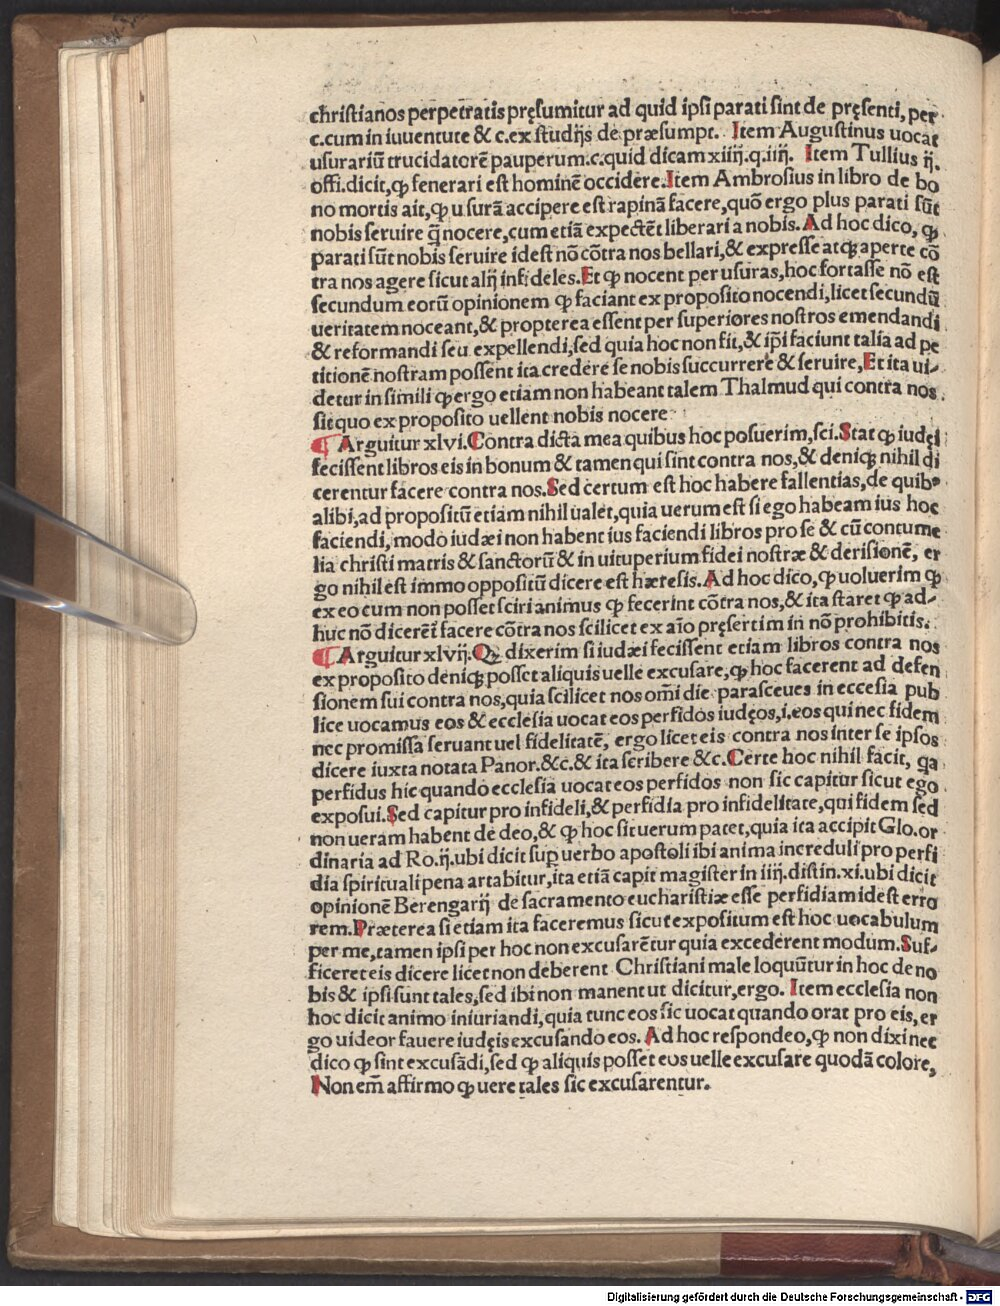 christianos perpetratis pręsumitur ad quid ipsi parati sint de pręsenti, per
c.cum in iuuentute & c.ex studijs de præsumpt. Item Augustinus uocat
usurariū trucidatorē pauperum.c.quid dicam xiiij.q.iiij. Item Tullius ij.
offi.dicit,ꝙ fenerari est hominē occidere.Item Ambrosius in libro de bo
no mortis ait,ꝙ usurā accipere est rapinā facere,quō ergo plus parati sūt
nobis seruire q̄ nocere,cum etiā expectēt liberari a nobis.Ad hoc dico, ꝙ
parati sūt nobis seruire idest nō cōtra nos bellari,& expresse atqꝫ aperte cō
tra nos agere sicut alij infideles.Et ꝙ nocent per usuras,hoc fortasse nō est
secundum eorū opinionem ꝙ faciant ex proposito nocendi,licet secundū
ueritatem noceant,& propterea essent per superiores nostros emendandi
& reformandi seu expellendi,sed quia hoc non fit,& ip̄i faciunt talia ad pe
titionē nostram possent ita credere se nobis succurrere & seruire,Et ita ui-
detur in simili ꝙ ergo etiam non habeant talem Thalmud qui contra nos
sit quo ex proposito uellent nobis nocere
¶ Arguitur xlvi.Contra dicta mea quibus hoc posuerim,sci.Stat ꝙ iudęi
fecissent libros eis in bonum & tamen qui sint contra nos,& deniqꝫ nihil di
cerentur facere contra nos.Sed certum est hoc habere fallentias,de quibꝰ
alibi,ad propositū etiam nihil ualet,quia uerum est si ego habeam ius hoc
faciendi,modo iudæi non habent ius faciendi libros pro se & cū contume
lia christi matris & sanctorū & in uituperium fidei nostræ & derisionē, er
go nihil est immo oppositū dicere est hæresis.Ad hoc dico,ꝙ uoluerim ꝙ
ex eo cum non posset sciri animus ꝙ fecerint cōtra nos,& ita staret ꝙ ad-
huc nō dicerēt̄ facere cōtra nos scilicet ex aīo pręsertim in nō prohibitis.
¶ Arguitur xlvij.Qꝫ dixerim si iudæi fecissent etiam libros contra nos
ex proposito deniqꝫ posset aliquis uelle excusare,ꝙ hoc facerent ad defen
sionem sui contra nos,quia scilicet nos om̄i die parasceues in eccesia pub
lice uocamus eos & ecclesia uocat eos perfidos iudęos,i.eos qui nec fidem
nec promissa seruant uel fidelitatē, ergo licet eis contra nos inter se ipsos
dicere iuxta notata Panor.&c.& ita scribere &c.Certe hoc nihil facit, qa
perfidus hic quando ecclesia uocat eos perfidos non sic capitur sicut ego
exposui.Sed capitur pro infideli,& perfidia pro infidelitate,qui fidem sed
non ueram habent de deo,& ꝙ hoc sit uerum patet,quia ita accipit Glo.or
dinaria ad Ro.ij.ubi dicit sup̱ uerbo apostoli ibi anima increduli pro perfi
dia spirituali pena artabitur,ita etiā capit magister in iiij.distin.xi.ubi dicit
opinionē Berengarij de sacramento eucharistiæ esse perfidiam idest erro
rem.Præterea si etiam ita faceremus sicut expositum est hoc uocabulum
per me,tamen ipsi per hoc non excusarētur quia excederent modum.Suf-
ficeret eis dicere licet non deberent Christiani male loquūtur in hoc de no
bis & ipsi sunt tales,sed ibi non manent ut dicitur,ergo. Item ecclesia non
hoc dicit animo iniuriandi,quia tunc eos sic uocat quando orat pro eis,er
go uideor fauere iudęis excusando eos. Ad hoc respondeo,ꝙ non dixi nec
dico ꝙ sint excusādi,sed ꝙ aliquis posset eos uelle excusare quodā colore,
Non em̄ affirmo ꝙ uere tales sic excusarentur.
Digitalisierung gefördert durch die Deutsche Forschungsgemeinschaft - DFG